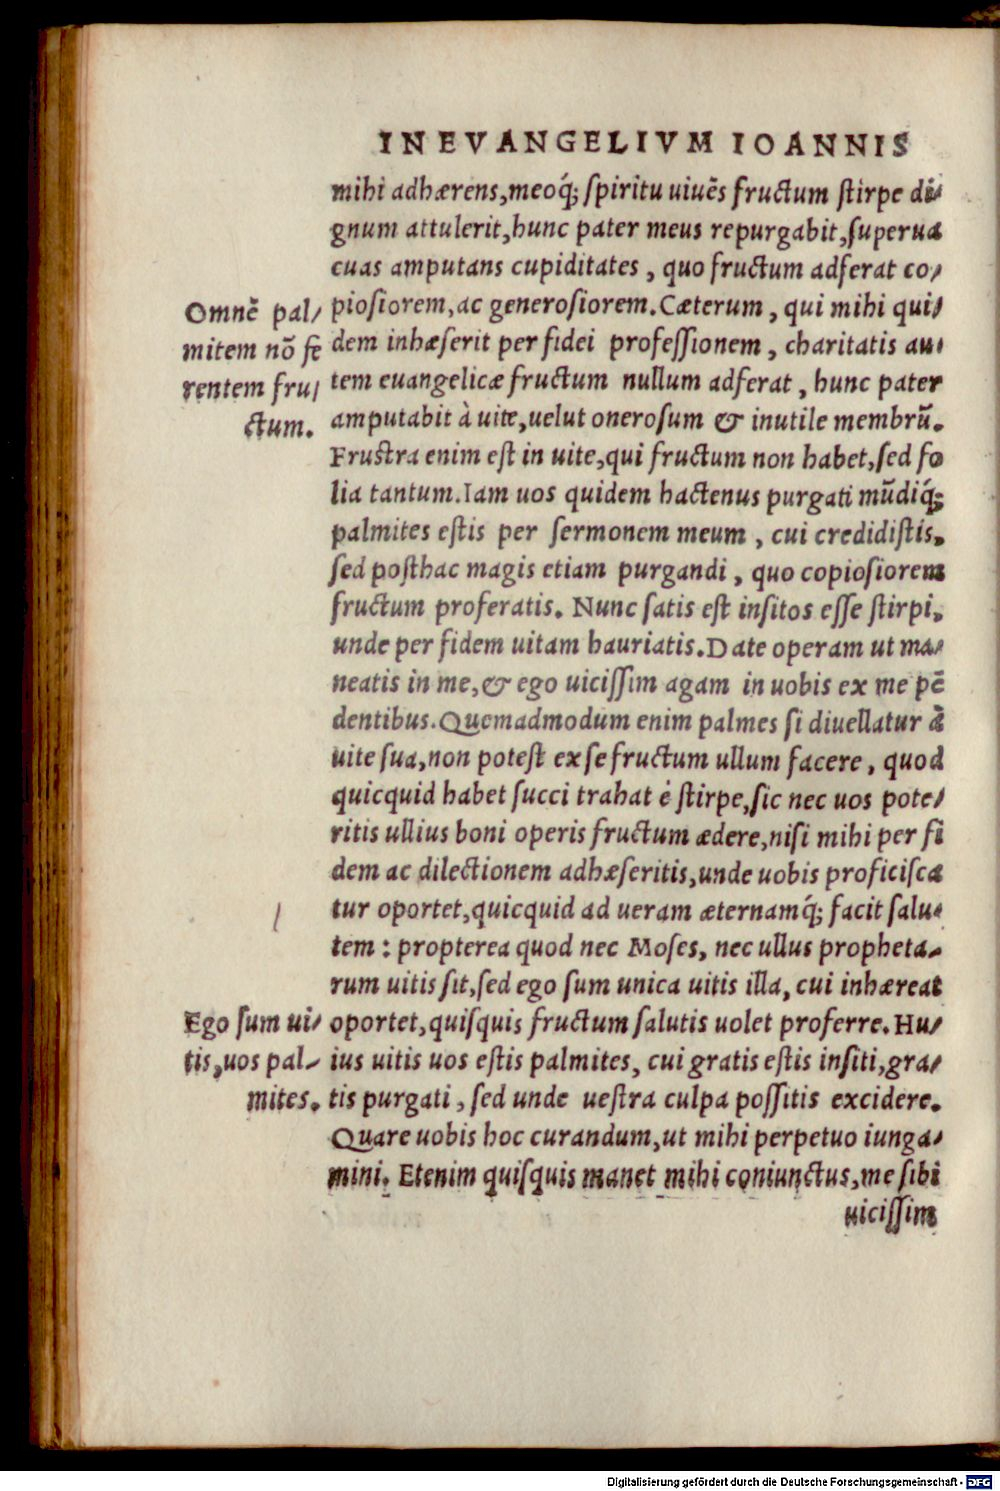 IN EVANGELIVM IOANNIS
mihi adhærens,meoq́; ſpiritu uiuẽs fructum ſtirpe di/
gnum attulerit,hunc pater meus repurgabit,ſuperua
cuas amputans cupiditates , quo fructum adferat co/
pioſiorem,ac generoſiorem.Cæterum , qui mihi qui/
dem inhæſerit per fidei profeſſionem , charitatis au/
tem euangelicæ fructum nullum adferat , hunc pater
amputabit à uite,uelut oneroſum & inutile membrũ.
Fruſtra enim eſt in uite,qui fructum non habet,ſed fo
lia tantum.Iam uos quidem hactenus purgati mũdiq́;
palmites eſtis per ſermonem meum , cui credidiſtis,
ſed poſthac magis etiam purgandi , quo copioſiorem
fructum proferatis. Nunc ſatis eſt inſitos eſſe ſtirpi,
unde per fidem uitam hauriatis.Date operam ut ma/
neatis in me,& ego uiciſſim agam in uobis ex me pẽ
dentibus.Quemadmodum enim palmes ſi diuellatur à
uite ſua,non poteſt ex ſe fructum ullum facere , quod
quicquid habet ſucci trahat è ſtirpe,ſic nec uos pote/
ritis ullius boni operis fructum ædere,niſi mihi per fi
dem ac dilectionem adhæſeritis,unde uobis proficiſca
tur oportet,quicquid ad ueram æternamq́; facit ſalu/
tem : propterea quod nec Moſes, nec ullus propheta/
rum uitis ſit,ſed ego ſum unica uitis illa, cui inhæreat
oportet,quiſquis fructum ſalutis uolet proferre.Hu/
ius uitis uos eſtis palmites, cui gratis eſtis inſiti,gra/
tis purgati , ſed unde ueſtra culpa poſſitis excidere.
Quare uobis hoc curandum,ut mihi perpetuo iunga/
mini. Etenim quiſquis manet mihi coniunctus,me ſibi
uiciſſim
Omnẽ pal/
mitem nõ fe
rentem fru/
ctum.
Ego ſum ui/
tis,uos pal/
mites.
Digitalisierung gefördert durch die Deutsche Forschungsgemeinschaft - DFG